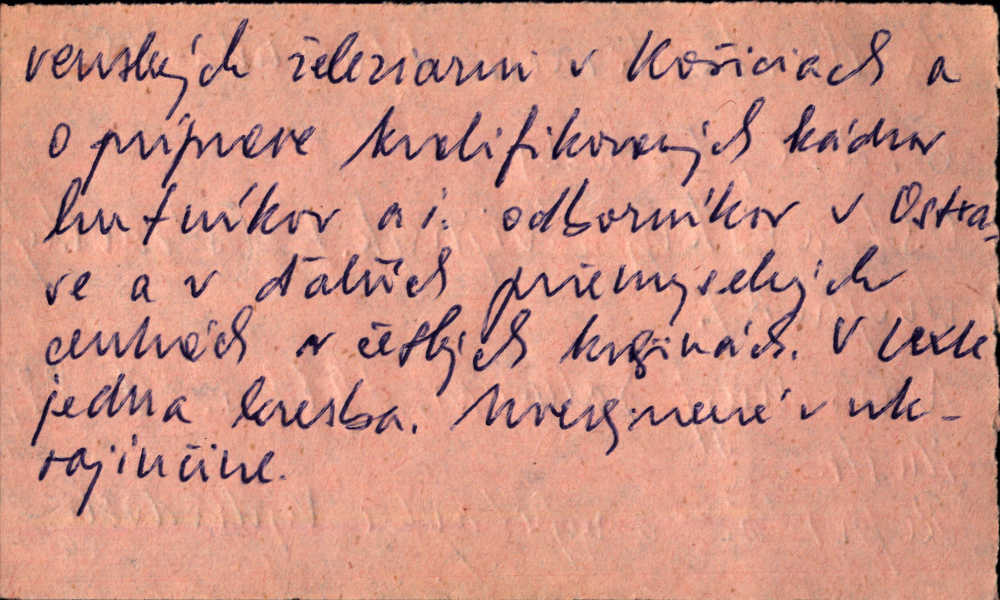 venských železiarni v Košiciach a
o príprave kvalifikovaných kádrov
hutníkov a i. odborníkov v Ostra-
ve a v ďalších priemyselných
centrách v českých krajinách. V texte
jedna kresba. Uverejnené v uk-
rajinčine.